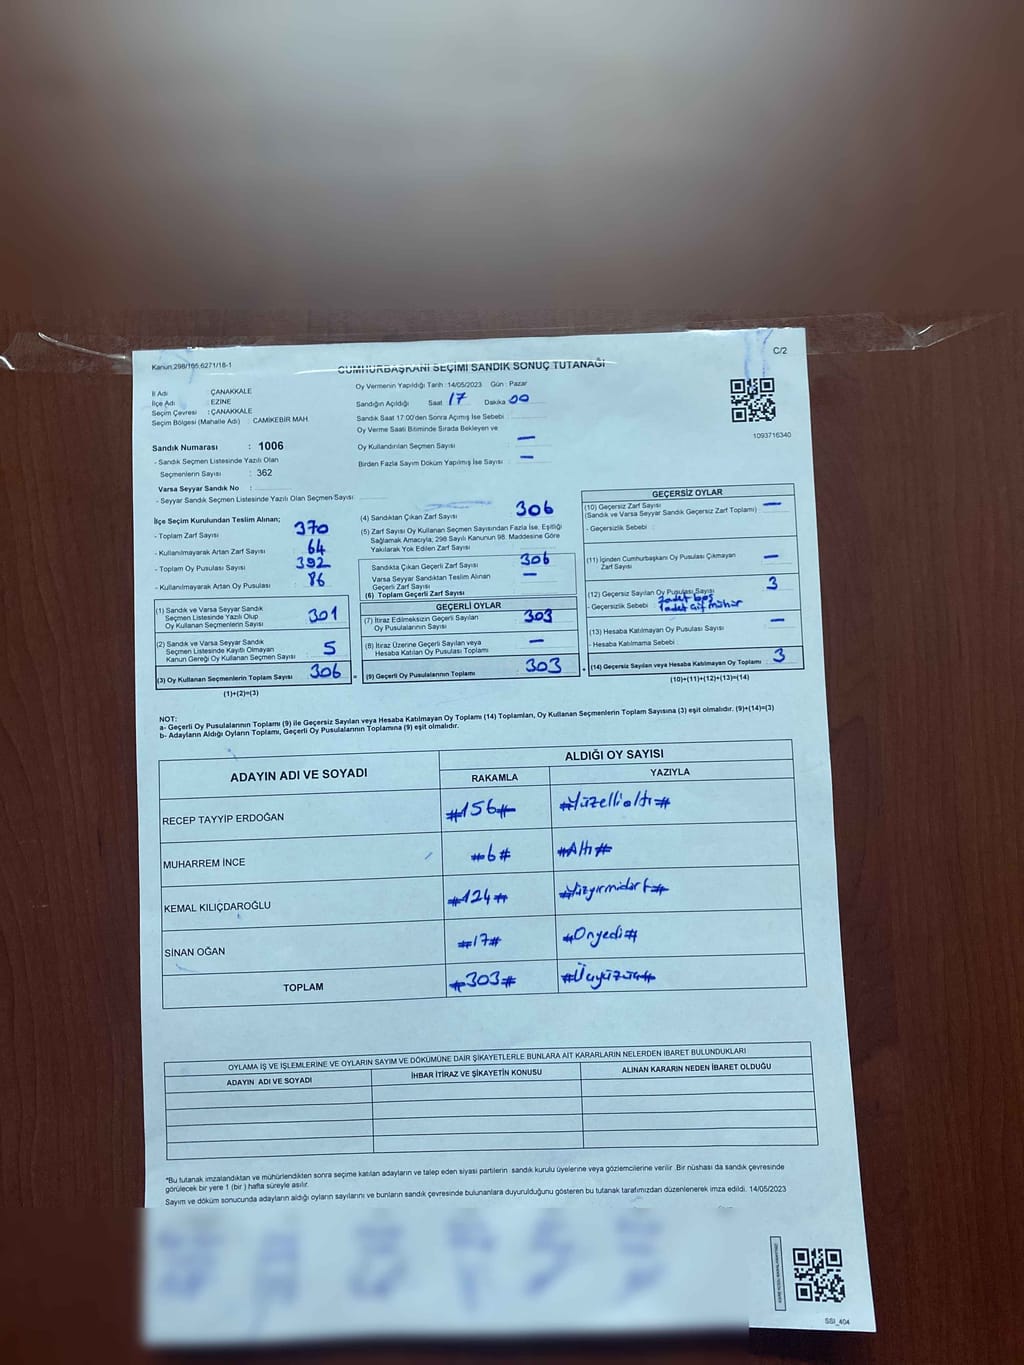 Kanun:298/105,6271/18-1
C/2
CUMHURBAŞKANI SEÇİMİ SANDIK SONUÇ TUTANAĞI
İl Adı : ÇANAKKALE
İlçe Adı : EZİNE
Seçim Çevresi : ÇANAKKALE
Seçim Bölgesi (Mahalle Adı) : CAMİKEBİR MAH.
Sandık Numarası : 1006
- Sandık Seçmen Listesinde Yazılı Olan
Seçmenlerin Sayısı : 362
Varsa Seyyar Sandık No :
- Seyyar Sandık Seçmen Listesinde Yazılı Olan Seçmen Sayısı
Oy Vermenin Yapıldığı Tarih : 14/05/2023 Gün : Pazar
Sandığın Açıldığı Saat 17 Dakika 00
Sandık Saat 17:00'den Sonra Açılmış İse Sebebi :
Oy Verme Saati Bitiminde Sırada Bekleyen ve
Oy Kullandırılan Seçmen Sayısı : —
Birden Fazla Sayım Döküm Yapılmış İse Sayısı : —
1093716340
İlçe Seçim Kurulundan Teslim Alınan;
- Toplam Zarf Sayısı : 370
- Kullanılmayarak Artan Zarf Sayısı : 64
- Toplam Oy Pusulası Sayısı : 392
- Kullanılmayarak Artan Oy Pusulası : 86
(1) Sandık ve Varsa Seyyar Sandık
Seçmen Listesinde Yazılı Olup
Oy Kullanan Seçmenlerin Sayısı : 301
(2) Sandık ve Varsa Seyyar Sandık
Seçmen Listesinde Kayıtlı Olmayan
Kanun Gereği Oy Kullanan Seçmen Sayısı : 5
(3) Oy Kullanan Seçmenlerin Toplam Sayısı : 306
(1)+(2)=(3)
(4) Sandıktan Çıkan Zarf Sayısı 306
(5) Zarf Sayısı Oy Kullanan Seçmen Sayısından Fazla İse, Eşitliği
Sağlamak Amacıyla; 298 Sayılı Kanunun 98. Maddesine Göre
Yakılarak Yok Edilen Zarf Sayısı
Sandıkta Çıkan Geçerli Zarf Sayısı 306
Varsa Seyyar Sandıktan Teslim Alınan
Geçerli Zarf Sayısı —
(6) Toplam Geçerli Zarf Sayısı
GEÇERLİ OYLAR
(7) İtiraz Edilmeksizin Geçerli Sayılan
Oy Pusulalarının Sayısı 303
(8) İtiraz Üzerine Geçerli Sayılan veya
Hesaba Katılan Oy Pusulası Toplamı —
(9) Geçerli Oy Pusulalarının Toplamı 303
GEÇERSİZ OYLAR
(10) Geçersiz Zarf Sayısı
(Sandık ve Varsa Seyyar Sandık Geçersiz Zarf Toplamı) : —
- Geçersizlik Sebebi :
(11) İçinden Cumhurbaşkanı Oy Pusulası Çıkmayan
Zarf Sayısı —
(12) Geçersiz Sayılan Oy Pusulası Sayısı 3
- Geçersizlik Sebebi : 2 adet boş
1 adet çift mühür
(13) Hesaba Katılmayan Oy Pusulası Sayısı : —
- Hesaba Katılmama Sebebi :
(14) Geçersiz Sayılan veya Hesaba Katılmayan Oy Toplamı 3
(10)+(11)+(12)+(13)=(14)
NOT:
a- Geçerli Oy Pusulalarının Toplamı (9) ile Geçersiz Sayılan veya Hesaba Katılmayan Oy Toplamı (14) Toplamları, Oy Kullanan Seçmenlerin Toplam Sayısına (3) eşit olmalıdır. (9)+(14)=(3)
b- Adayların Aldığı Oyların Toplamı, Geçerli Oy Pusulalarının Toplamına (9) eşit olmalıdır.
ADAYIN ADI VE SOYADI
ALDIĞI OY SAYISI
RAKAMLA YAZIYLA
RECEP TAYYİP ERDOĞAN #156# #Yüzellialtı#
MUHARREM İNCE #6# #Altı#
KEMAL KILIÇDAROĞLU #124# #Yüzyirmidört#
SİNAN OĞAN #17# #Onyedi#
TOPLAM #303# #Üçyüzüç#
OYLAMA İŞ VE İŞLEMLERİNE VE OYLARIN SAYIM VE DÖKÜMÜNE DAİR ŞİKAYETLERLE BUNLARA AİT KARARLARIN NELERDEN İBARET BULUNDUKLARI
ADAYIN ADI VE SOYADI İHBAR İTİRAZ VE ŞİKAYETİN KONUSU ALINAN KARARIN NEDEN İBARET OLDUĞU
*Bu tutanak imzalandıktan ve mühürlendikten sonra seçime katılan adayların ve talep eden siyasi partilerin sandık kurulu üyelerine veya gözlemcilerine verilir. Bir nüshası da sandık çevresinde
görülecek bir yere 1 (bir) hafta süreyle asılır.
Sayım ve döküm sonucunda adayların aldığı oyların sayılarını ve bunların sandık çevresinde bulunanlara duyurulduğunu gösteren bu tutanak tarafımızdan düzenlenerek imza edildi. 14/05/2023
SSI_404